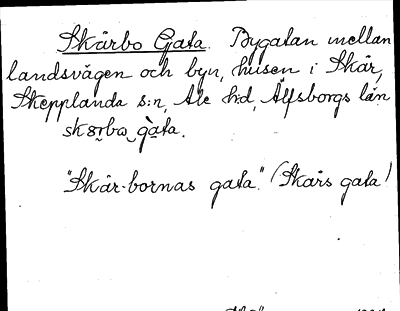 Skärbo Gata. Bygatan mellan
landsvägen och byn, husen i Skår,
Skepplanda s:n, Ale h:d, Älfsborgs län
skärbo gàta.
"Skår-bornas gata." (Skårs gata)